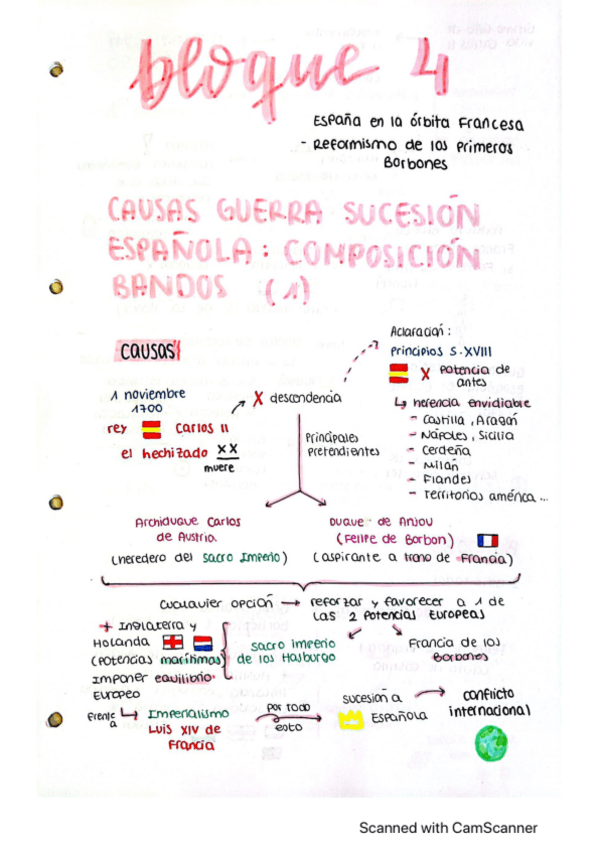 bloque 4
España en la órbita Francesa
- Reformismo de los primeros
Borbones
CAUSAS GUERRA SUCESIÓN
ESPAÑOLA: COMPOSICIÓN
BANDOS (1)
causas
Aclaración:
principios S.XVIII
X potencia de
antes
↳ herencia envidiable
- Castilla, Aragón
- Nápoles, Sicilia
- Cerdeña
- Milán
- Flandes
- Territorios américa...
1 noviembre
1700
rey Carlos II
el hechizado XX
muere
X descendencia
principales
pretendientes
Archiduque Carlos
de Austria
(heredero del sacro Imperio)
Duque de Anjou
(Felipe de Borbon)
(aspirante a trono de Francia)
cualquier opción → reforzar y favorecer a 1 de
las 2 potencias Europeas
+ Inglaterra y
Holanda
(potencias marítimas)
Imponer equilibrio
Europeo
sacro imperio
de los Hasburgo
Francia de los
Borbones
frente
a
↳ Imperialismo
Luis XIV de
Francia
por todo
esto
sucesión a
Española
→ conflicto
internacional
Scanned with CamScanner